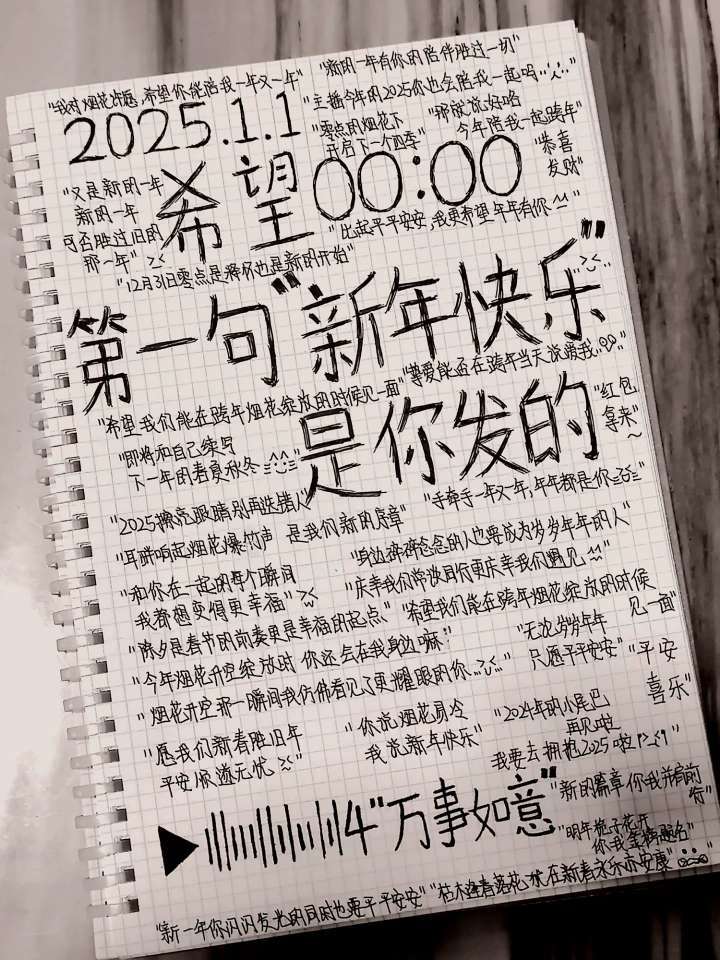 "新的一年有你的陪伴胜过一切"
"我对烟花许愿,希望你能陪我一年又一年"
"主播今年的2025你也会陪我一起吗
2025.1.1
"零点的烟花下
开启下一个四季"
"那就说好咯
今年陪我一起跨年"
"恭喜
发财"
"又是新的一年
新的一年
可否胜过旧的
那一年"
希望00:00
"比起平平安安,我更希望年年有你
"12月31日零点是释怀也是新的开始"
第一句"新年快乐"
"尊爱能否在跨年当天说爱我
"希望我们能在跨年烟花绽放的时候见一面"
是你发的
"红包
拿来~
"即将和自己续写
下一年的春夏秋冬
"手牵手一年又一年,年年都是你
"2025擦亮眼睛别再选错人"
"耳畔响起烟花爆竹声 是我们新的序章"
"身边碎碎念念的人也要成为岁岁年年的人"
"和你在一起的每个瞬间
我都想变得更幸福"
"庆幸我们常谈同行更庆幸我们遇见
"除夕是春节的前奏更是幸福的起点"
"希望我们能在跨年烟花绽放的时候
见一面"
"今年烟花升空绽放时 你还会在我身边嘛"
"无论岁岁年年
只愿平平安安"
"平安
喜乐"
"烟花升空那一瞬间我仿佛看见了更耀眼的你
"愿我们新春胜旧年
平安顺遂无忧
"你说烟花易冷
我说新年快乐"
"2024年的小尾巴
再见啦
我要去拥抱2025啦
"新的篇章你我并肩前
行"
4"万事如意"
"明年栀子花开
你我金榜题名"
"枯木逢春落花 伏在新春永乐亦安康"
"新一年你闪闪发光的同时也要平平安安"